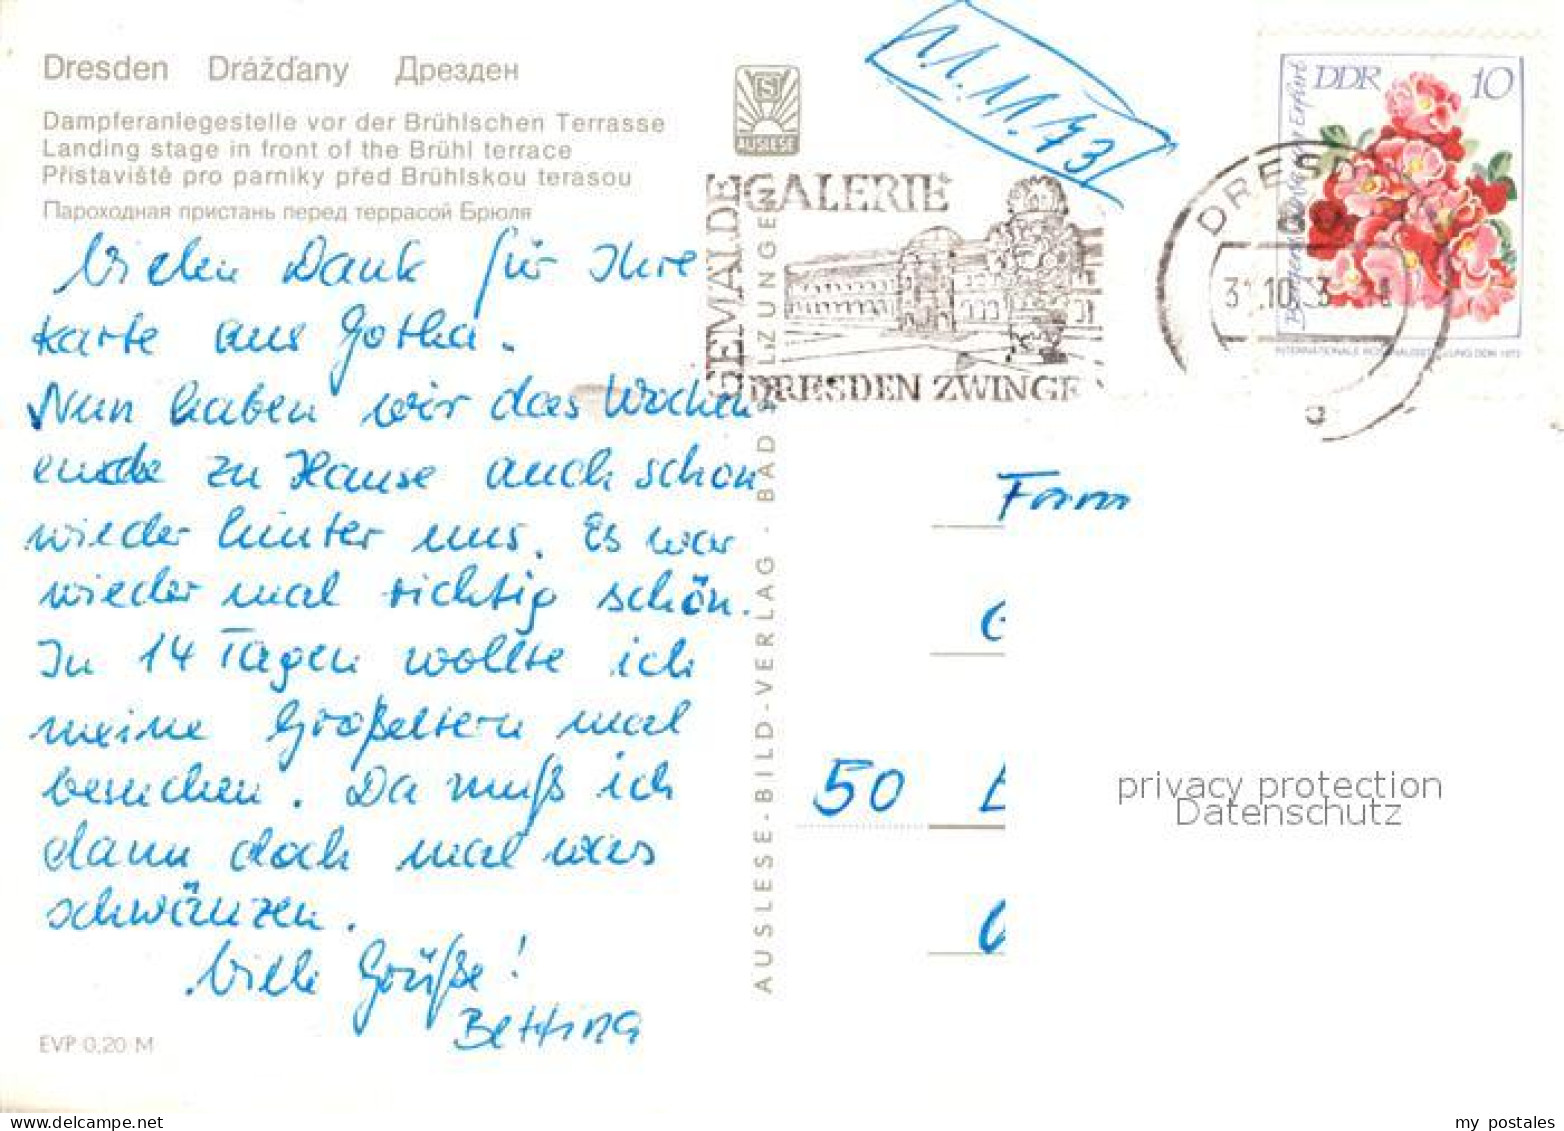 Dresden Drážďany Дрезден
Dampferanlegestelle vor der Brühlschen Terrasse
Landing stage in front of the Brühl terrace
Přístaviště pro parníky před Brühlskou terasou
Пароходная пристань перед террасой Брюля
Vielen Dank für Ihre
Karte aus Gotha.
Nun haben wir das Wochen
ende zu Hause auch schon
wieder hinter uns. Es war
wieder mal richtig schön.
In 14 Tagen wollte ich
meine Großeltern mal
besuchen. Da muß ich
dann doch mal was
schwänzen.
Viele Grüße!
Bettina
EVP 0,20 M
AUSLESE
AUSLESE-BILD-VERLAG · BAD SALZUNGEN
11.11.73
GEMÄLDE
GALERIE
DRESDEN ZWINGE
DRESD
DDR 10
INTERNATIONALE AUSSTELLUNG DDR 1972
Fam
G
50
privacy protection
Datenschutz
my postales